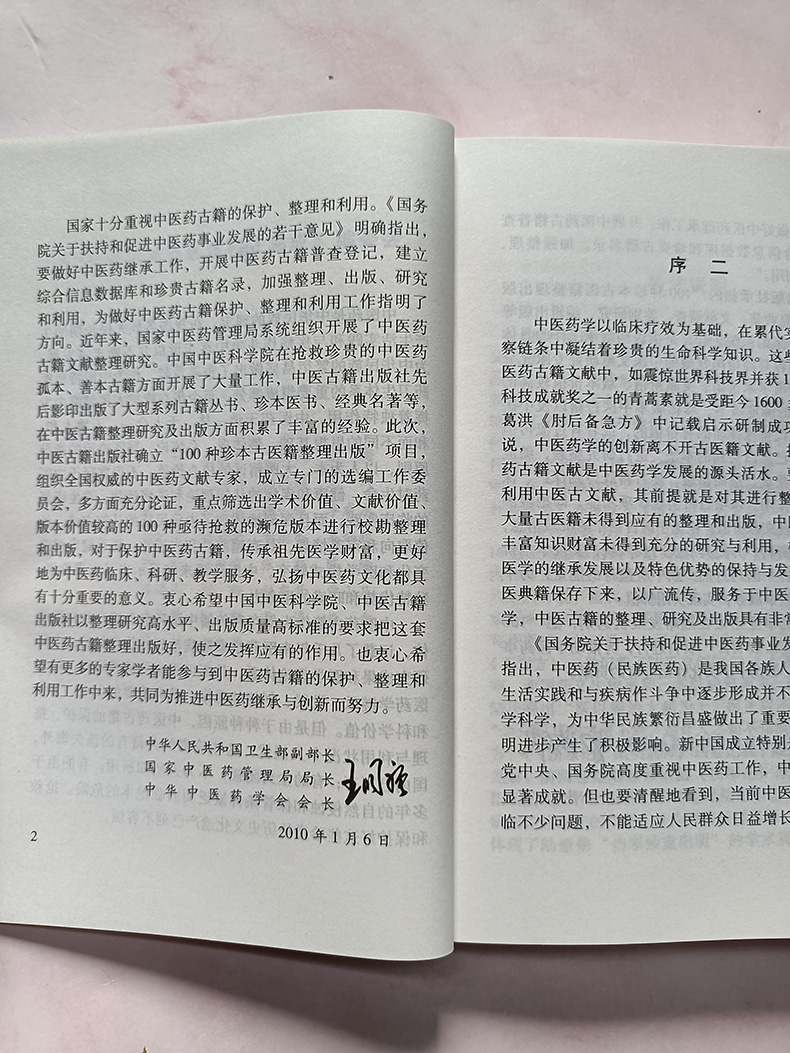 国家十分重视中医药古籍的保护、整理和利用。《国务
院关于扶持和促进中医药事业发展的若干意见》明确指出，
要做好中医药继承工作，开展中医药古籍普查登记，建立
综合信息数据库和珍贵古籍名录，加强整理、出版、研究
和利用，为做好中医药古籍保护、整理和利用工作指明了
方向。近年来，国家中医药管理局系统组织开展了中医药
古籍文献整理研究。中国中医科学院在抢救珍贵的中医药
孤本、善本古籍方面开展了大量工作，中医古籍出版社先
后影印出版了大型系列古籍丛书、珍本医书、经典名著等，
在中医古籍整理研究及出版方面积累了丰富的经验。此次，
中医古籍出版社确立“100 种珍本古医籍整理出版”项目，
组织全国权威的中医药文献专家，成立专门的选编工作委
员会，多方面充分论证，重点筛选出学术价值、文献价值、
版本价值较高的 100 种亟待抢救的濒危版本进行校勘整理
和出版，对于保护中医药古籍，传承祖先医学财富，更好
地为中医药临床、科研、教学服务，弘扬中医药文化都具
有十分重要的意义。衷心希望中国中医科学院、中医古籍
出版社以整理研究高水平、出版质量高标准的要求把这套
中医药古籍整理出版好，使之发挥应有的作用。也衷心希
望有更多的专家学者能参与到中医药古籍的保护、整理和
利用工作中来，共同为推进中医药继承与创新而努力。
中华人民共和国卫生部副部长
国家中医药管理局局长
中华中医药学会会长
王国强
2010 年 1 月 6 日
2
序 二
中医药学以临床疗效为基础，在累代实
察链条中凝结着珍贵的生命科学知识。这些
医药古籍文献中，如震惊世界科技界并获 1
科技成就奖之一的青蒿素就是受距今 1600 多
葛洪《肘后备急方》中记载启示研制成功
说，中医药学的创新离不开古医籍文献。
药古籍文献是中医药学发展的源头活水。
利用中医古文献，其前提就是对其进行整
大量古医籍未得到应有的整理和出版，中
丰富知识财富未得到充分的研究与利用，
医学的继承发展以及特色优势的保持与发
医典籍保存下来，以广流传，服务于中医
学，中医古籍的整理、研究及出版具有非常
《国务院关于扶持和促进中医药事业发
指出，中医药（民族医药）是我国各族人
生活实践和与疾病作斗争中逐步形成并不
学科学，为中华民族繁衍昌盛做出了重要
明进步产生了积极影响。新中国成立特别
党中央、国务院高度重视中医药工作，中
显著成就。但也要清醒地看到，当前中医
临不少问题，不能适应人民群众日益增长